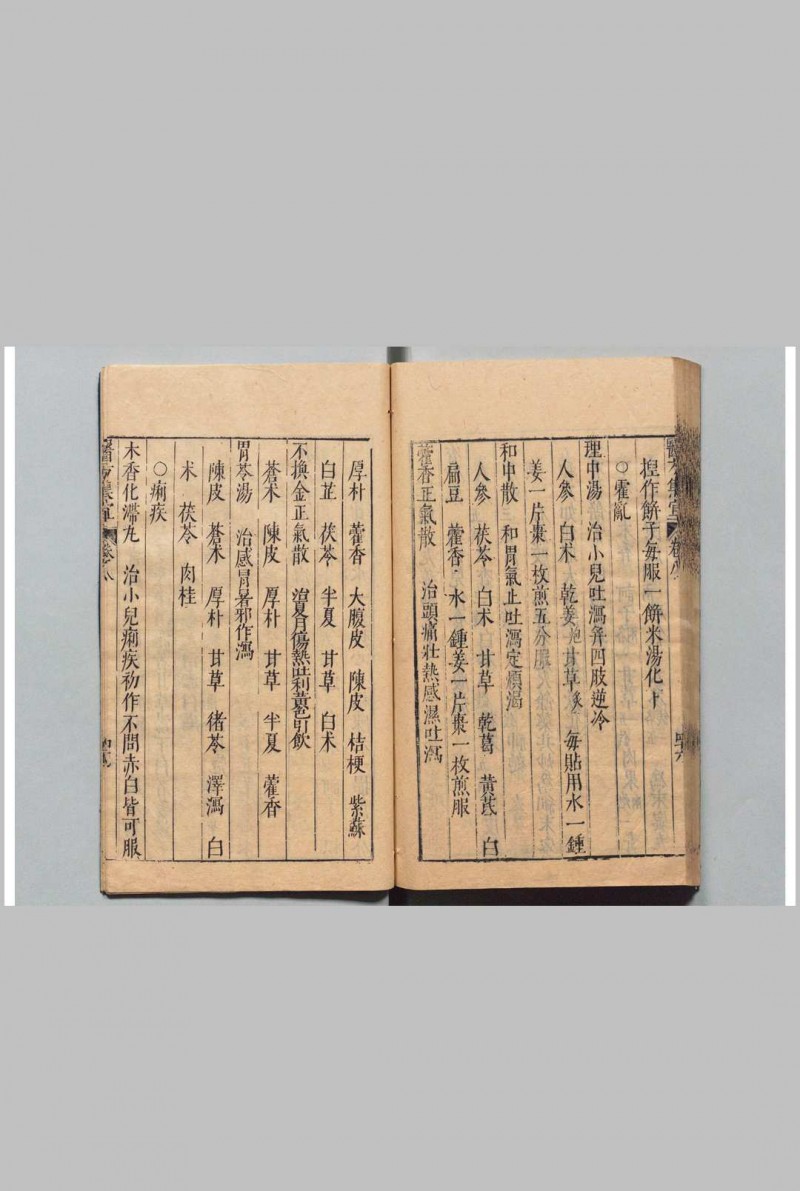 醫方集宜 卷八 四六
捏作餅子每服一餅米湯化下
○霍亂
理中湯 治小兒吐瀉并四肢逆冷
人參 白术 乾姜炮 甘草 每貼用水一鍾
姜一片棗一枚煎五分服
和中散 和胃氣止吐瀉定煩渴
人參 茯苓 白术 甘草 乾葛 黃芪 白
扁豆 藿香 水一鍾姜一片棗一枚煎服
藿香正氣散 治頭痛壯熱感濕吐瀉
厚朴 藿香 大腹皮 陳皮 桔梗 紫蘇
白芷 茯苓 半夏 甘草 白术
不換金正氣散 治夏月傷熱吐利黃色引飲
蒼术 陳皮 厚朴 甘草 半夏 藿香
胃苓湯 治感冒暑邪作瀉
陳皮 蒼术 厚朴 甘草 猪苓 澤瀉 白
术 茯苓 肉桂
○痢疾
木香化滯丸 治小兒痢疾初作不問赤白皆可服
醫方集宜 卷八